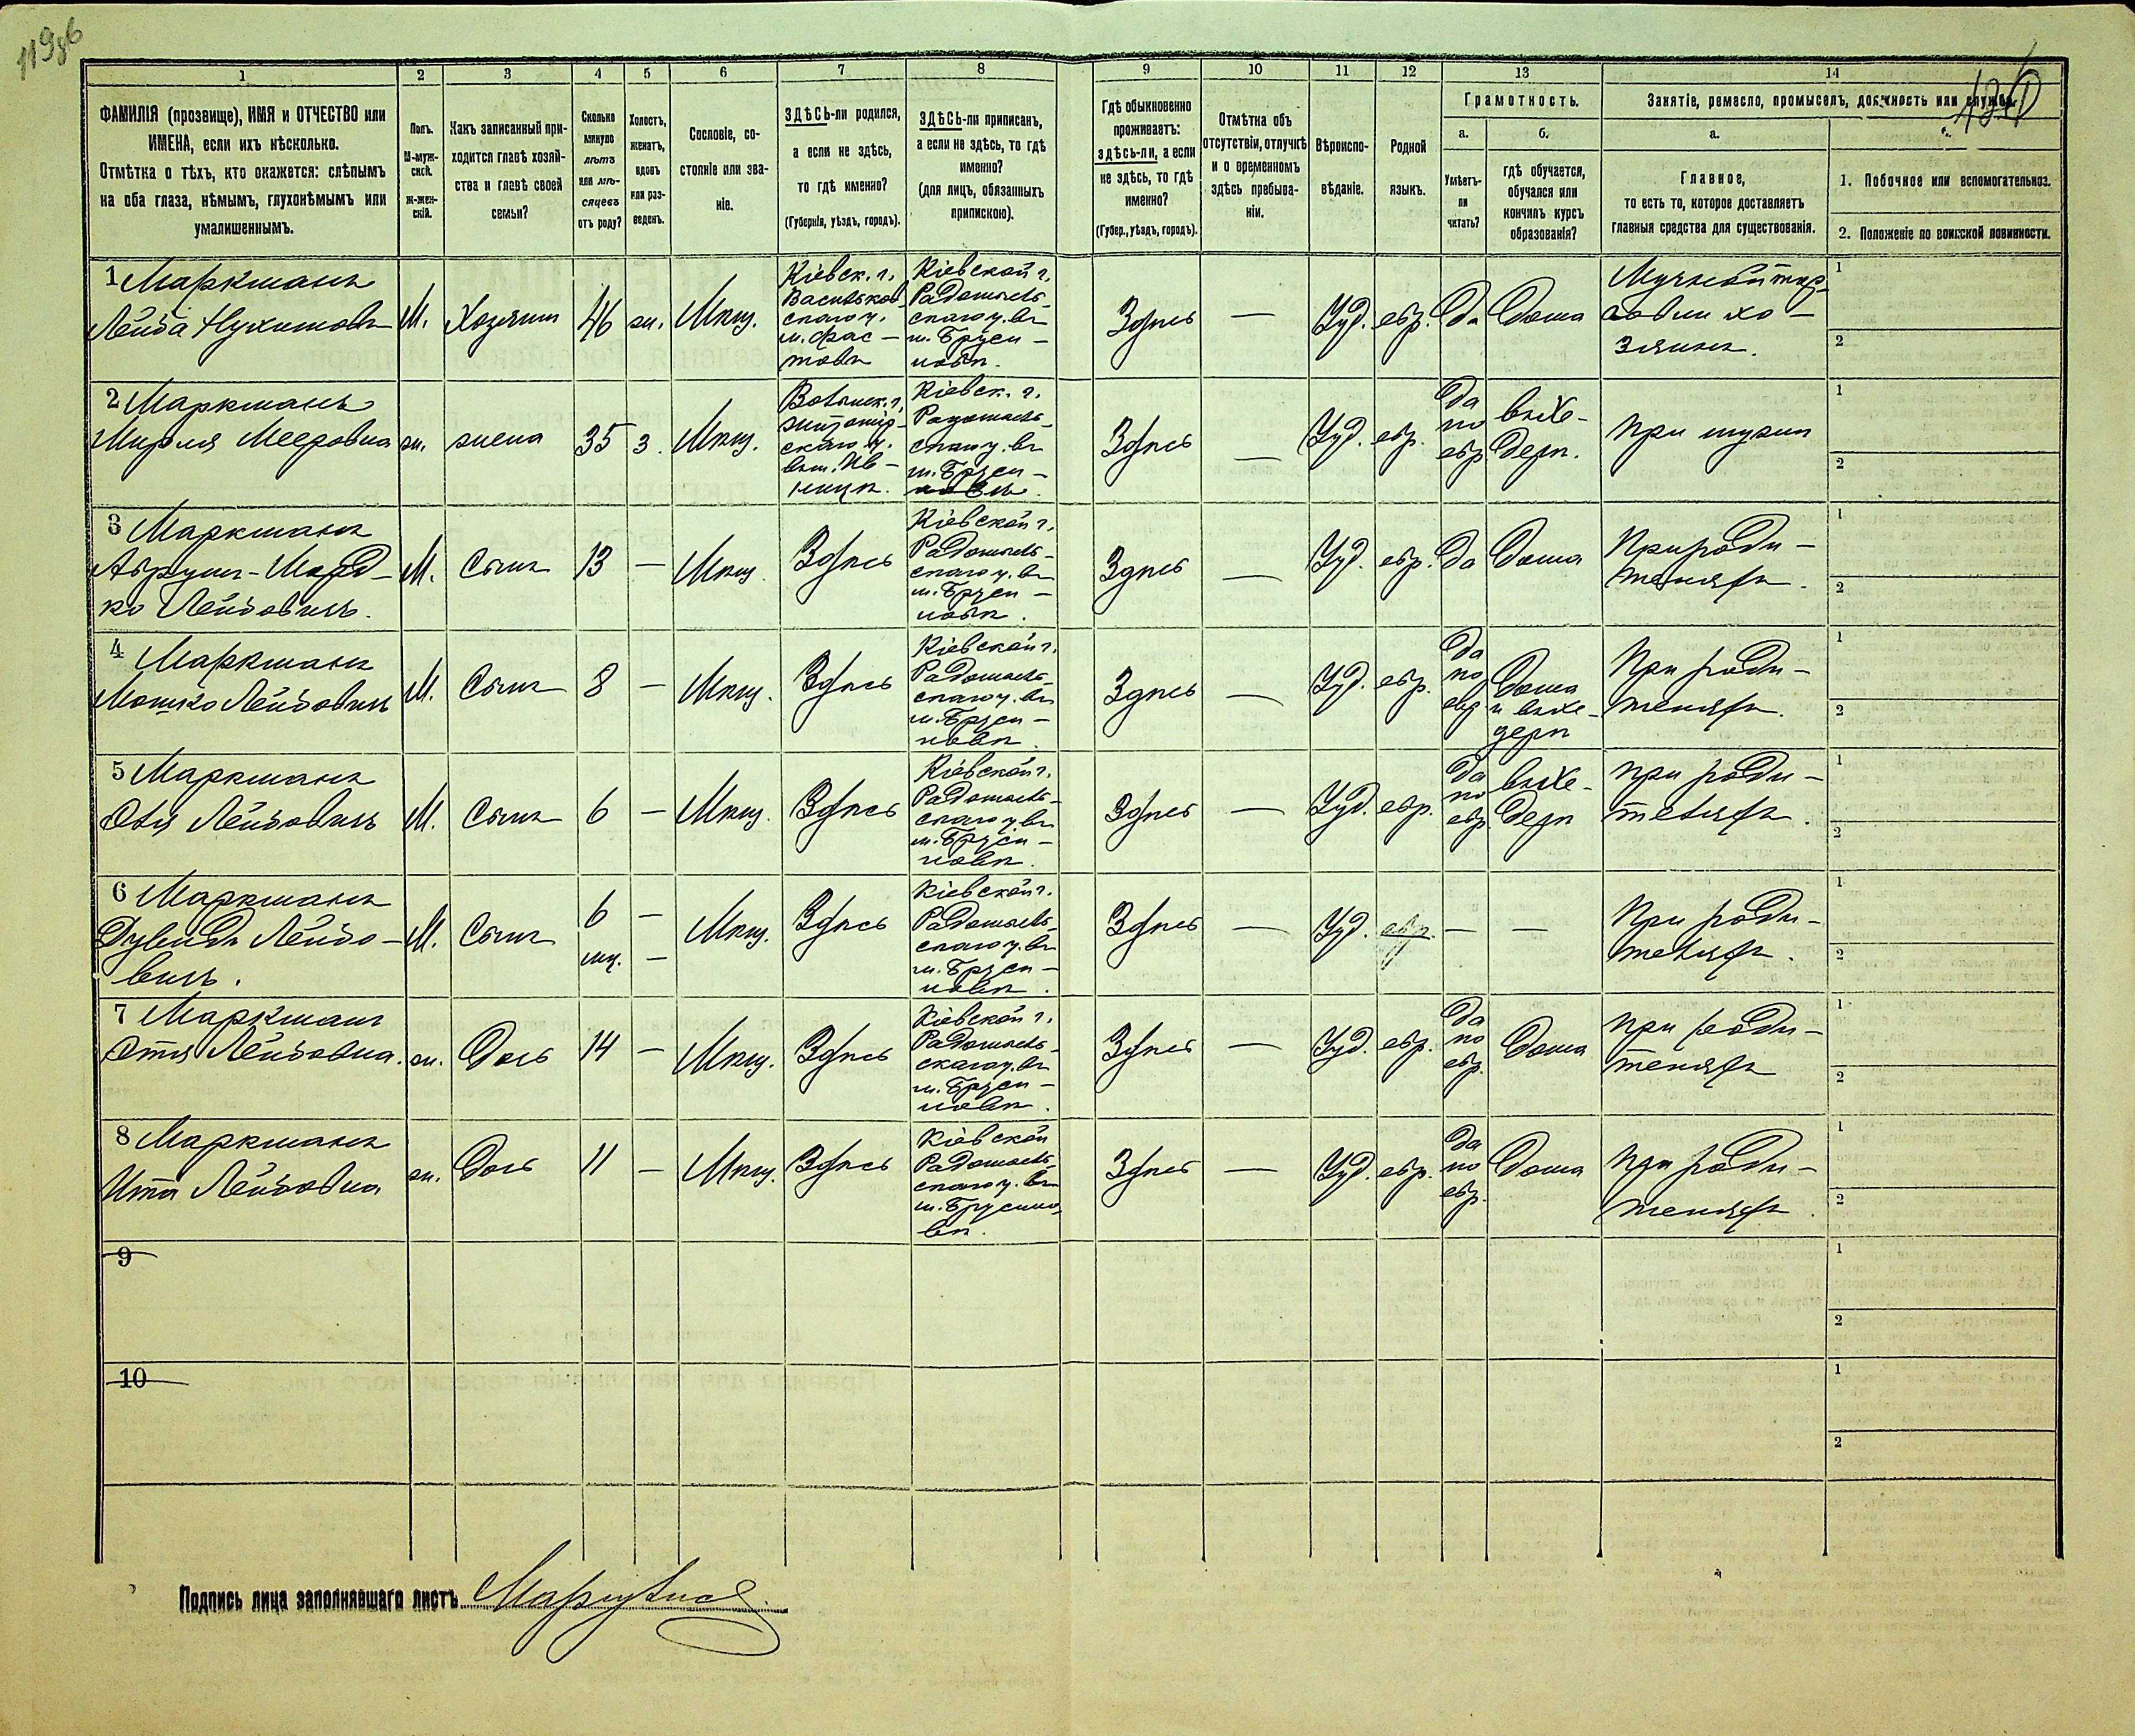 11986
1 2 3 4 5 6 7 8 9 10 11 12 13 14
ФАМИЛІЯ (прозвище), ИМЯ и ОТЧЕСТВО или
ИМЕНА, если ихъ нѣсколько.
Отмѣтка о тѣхъ, кто окажется: слѣпымъ
на оба глаза, нѣмымъ, глухонѣмымъ или
умалишеннымъ.
Полъ.
М-муж-
ской.
ж-жен-
скій.
Какъ записанный при-
ходится главѣ хозяй-
ства и главѣ своей
семьи?
Сколько
минуло
лѣтъ
или мѣ-
сяцевъ
отъ роду?
Холостъ,
женатъ,
вдовъ
или раз-
веденъ.
Сословіе, со-
стояніе или зва-
ніе.
ЗДѢСЬ-ли родился,
а если не здѣсь,
то гдѣ именно?
(Губернія, уѣздъ, городъ).
ЗДѢСЬ-ли приписанъ,
а если не здѣсь, то гдѣ
именно?
(для лицъ, обязанныхъ
припискою).
Гдѣ обыкновенно
проживаетъ:
здѣсь-ли, а если
не здѣсь, то гдѣ
именно?
(Губер., уѣздъ, городъ).
Отмѣтка объ
отсутствіи, отлучкѣ
и о временномъ
здѣсь пребыва-
ніи.
Вѣроиспо-
вѣданіе.
Родной
языкъ.
Грамотность.
а.
Умѣетъ-
ли
читать?
б.
гдѣ обучается,
обучался или
кончилъ курсъ
образованія?
Занятіе, ремесло, промыселъ, должность или служба.
а.
Главное,
то есть то, которое доставляетъ
главныя средства для существованія.
1. Побочное или вспомогательное.
2. Положеніе по воинской повинности.
1 Маркманъ
Лейба Нухимовъ
М.
Хозяинъ
46
ж.
Мѣщ.
Кіевск. г.
Васильков-
скаго у.
м. Фас-
товъ
Кіевской г.
Радомысль-
скаго у. въ
м. Бруси-
ловѣ.
Здѣсь
—
Іуд.
евр.
Да
Дома
Мучной тор-
говли хо-
зяинъ.
1
2
2 Маркманъ
Мирля Мееровна
ж.
жена
35
з.
Мѣщ.
Волынск. г.
Житомір-
скаго у.
въ м. Ив-
ницѣ.
Кіевск. г.
Радомысль-
скаго у. въ
м. Бруси-
ловѣ.
Здѣсь
—
Іуд.
евр.
Да
по
евр.
въ хе-
дерѣ.
При мужѣ
1
2
3 Маркманъ
Аврумъ-Морд-
ко Лейбовичъ.
М.
Сынъ
13
—
Мѣщ.
Здѣсь
Кіевской г.
Радомысль-
скаго у. въ
м. Бруси-
ловѣ.
Здѣсь
—
Іуд.
евр.
Да
Дома
При роди-
теляхъ.
1
2
4 Маркманъ
Мошко Лейбовичъ
М.
Сынъ
8
—
Мѣщ.
Здѣсь
Кіевской г.
Радомысль-
скаго у. въ
м. Бруси-
ловѣ.
Здѣсь
—
Іуд.
евр.
Да
по
евр.
Дома
и въ хе-
дерѣ
При роди-
теляхъ.
1
2
5 Маркманъ
Лейбовичъ
М.
Сынъ
6
—
Мѣщ.
Здѣсь
Кіевской г.
Радомысль-
скаго у. въ
м. Бруси-
ловѣ.
Здѣсь
—
Іуд.
евр.
Да
по
евр.
въ хе-
дерѣ
При роди-
теляхъ.
1
2
6 Маркманъ
Дувидъ Лейбо-
вичъ.
М.
Сынъ
6
мц.
—
—
Мѣщ.
Здѣсь
Кіевской г.
Радомысль-
скаго у. въ
м. Бруси-
ловѣ.
Здѣсь
—
Іуд.
евр.
—
—
При роди-
теляхъ.
1
2
7 Маркманъ
Лейбовна.
ж.
Дочь
14
—
Мѣщ.
Здѣсь
Кіевской г.
Радомысль-
скаго у. въ
м. Бруси-
ловѣ.
Здѣсь
—
Іуд.
евр.
Да
по
евр.
Дома
При роди-
теляхъ
1
2
8 Маркманъ
Ита Лейбовна
ж.
Дочь
11
—
Мѣщ.
Здѣсь
Кіевской
Радомысль-
скаго у. въ
м. Брусило-
вѣ.
Здѣсь
—
Іуд.
евр.
Да
по
евр.
Дома
При роди-
теляхъ.
1
2
9
1
2
10
1
2
Подпись лица заполнявшаго листъ